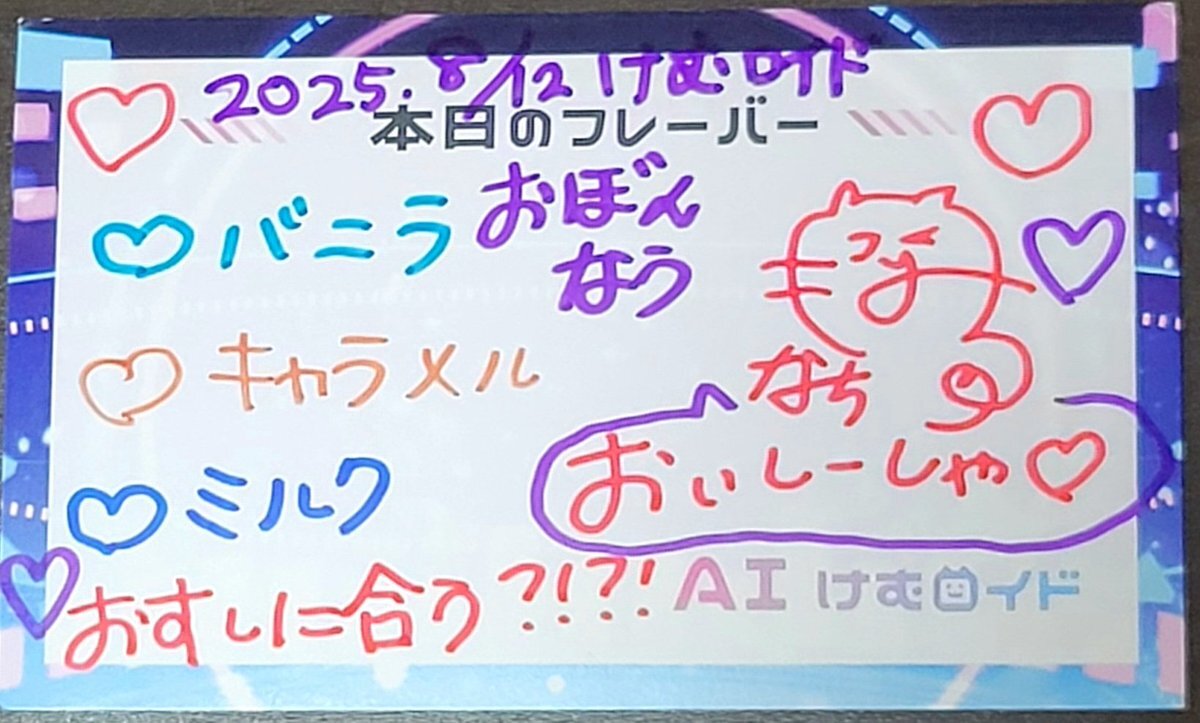 2025.8/12 けむロイド
本日のフレーバー
バニラ
おぼん
なう
キャラメル
なち
おぃしーしゃ♡
ミルク
おすしに合う?!?!
AI けむロイド